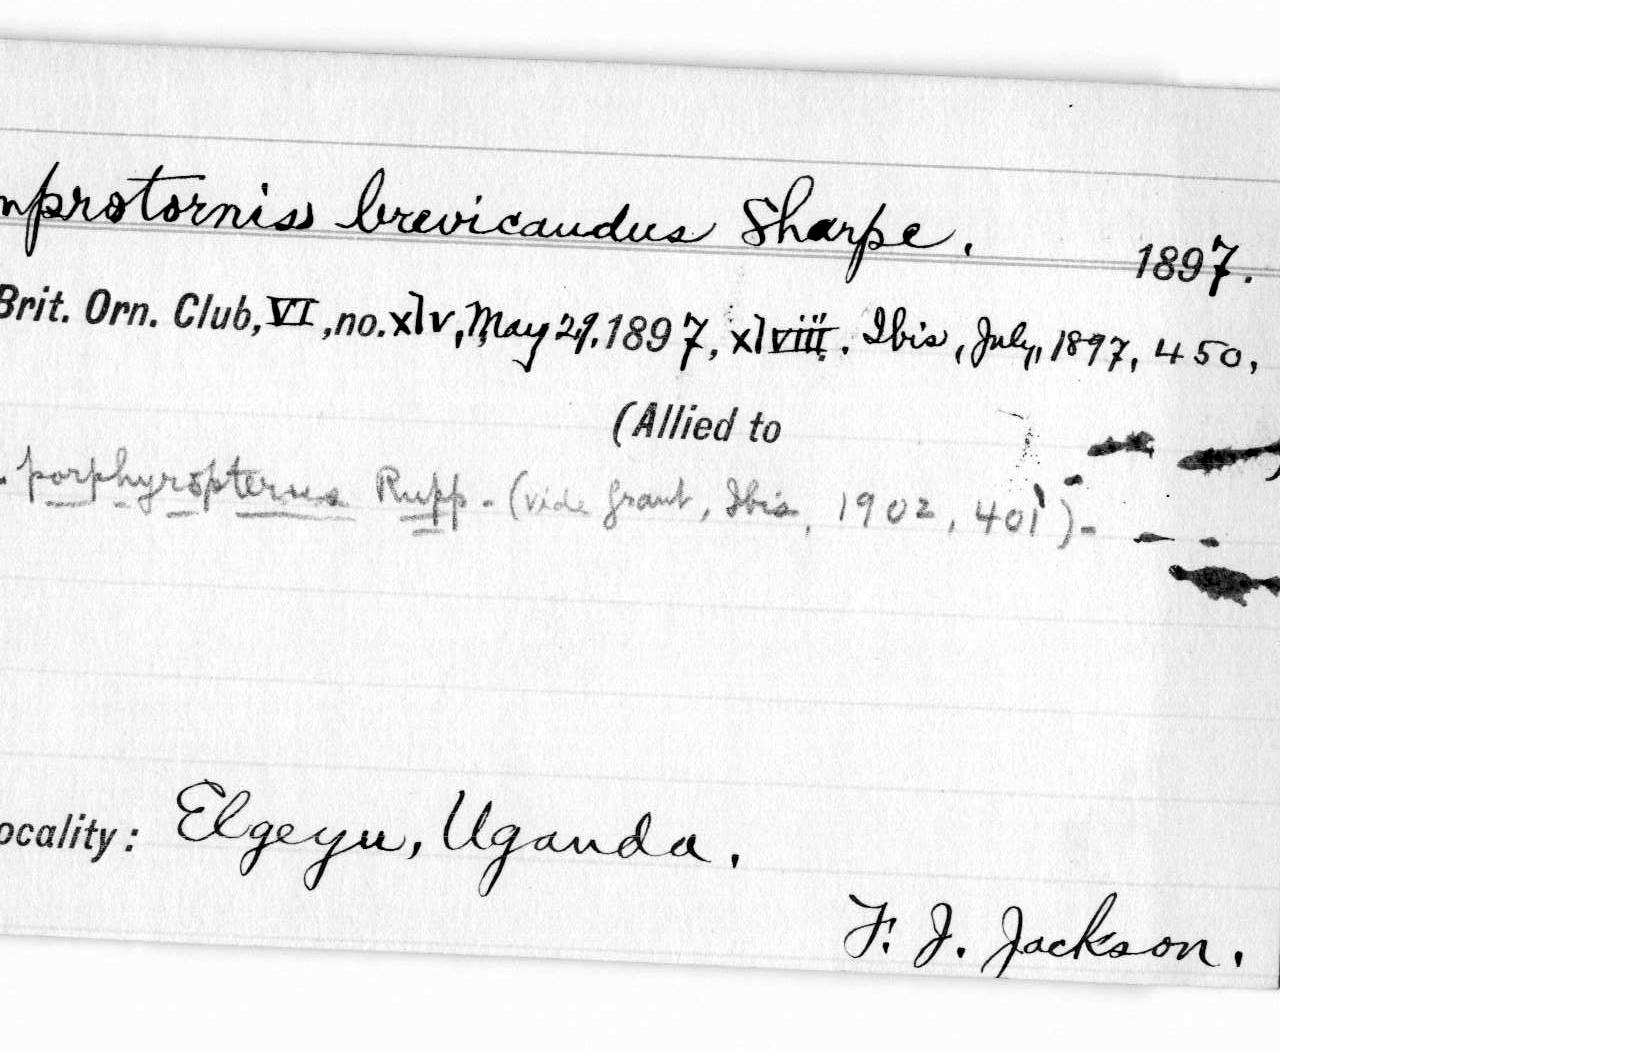 mprotornis brevicaudus Sharpe. 1897.
Brit. Orn. Club, VI, no. xlv, May 29. 1897, xlviii. Ibis, July, 1897, 450,
(Allied to
. porphyropterus Rüpp. (vide Grant, Ibis, 1902, 401).
ocality: Elgeyu, Uganda.
F. J. Jackson.